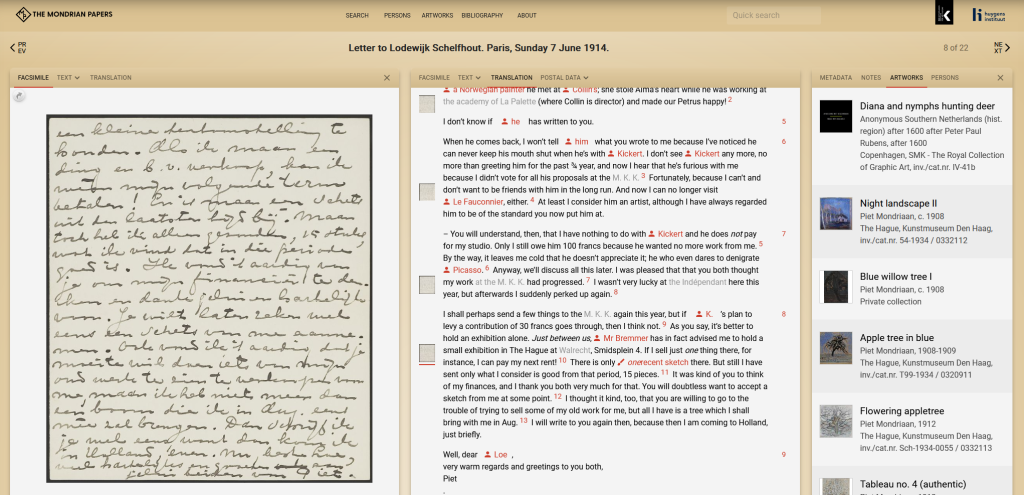 THE MONDRIAN PAPERS
SEARCH PERSONS ARTWORKS BIBLIOGRAPHY ABOUT
Quick search
huygens
instituut
PR
EV
Letter to Lodewijk Schelfhout. Paris, Sunday 7 June 1914.
8 of 22
NE
XT
FACSIMILE TEXT TRANSLATION
een kleine tentoonstelling te
houden. Als ik maar een
ding en b.v. verkoop, kan ik
weer mijn volgende term
betalen! Er is maar een schets
uit den laatsten tijd bij. Maar
toch heb ik alleen gezonden, 15 stuks
wat ik vind dat in die periode
goed is.
om mijn financiën te den-
ken en dank jelui er hartelijk
voor. Je wilt later zeker wel
eens een schets van me aanne-
men. Ook vond ik 't aardig dat je
moeite wil doen iets van mijn
oud werk te
me, maar ik heb niet meer dan
een boom die ik in Aug. eens
mee zal brengen. Dan schrijf ik
je wel eens want dan kom ik
in Holland, even. Nu, beste Loe,
veel hartelijks en groeten
jelui beiden van Piet.
FACSIMILE TEXT TRANSLATION POSTAL DATA
a Norwegian painter he met at Collin's; she stole Alma's heart while he was working at
the academy of La Palette (where Collin is director) and made our Petrus happy! 2
I don't know if he has written to you. 5
When he comes back, I won't tell him what you wrote to me because I've noticed he 6
can never keep his mouth shut when he's with Kickert. I don't see Kickert any more, no
more than greeting him for the past ¾ year, and now I hear that he's furious with me
because I didn't vote for all his proposals at the M. K. K. 3 Fortunately, because I can't and
don't want to be friends with him in the long run. And now I can no longer visit
Le Fauconnier, either. 4 At least I consider him an artist, although I have always regarded
him to be of the standard you now put him at.
– You will understand, then, that I have nothing to do with Kickert and he does not pay 7
for my studio. Only I still owe him 100 francs because he wanted no more work from me. 5
By the way, it leaves me cold that he doesn't appreciate it; he who even dares to denigrate
Picasso. 6 Anyway, we'll discuss all this later. I was pleased that that you both thought
my work at the M. K. K. had progressed. 7 I wasn't very lucky at the Indépendant here this
year, but afterwards I suddenly perked up again. 8
I shall perhaps send a few things to the M. K. K. again this year, but if K. 's plan to 8
levy a contribution of 30 francs goes through, then I think not. 9 As you say, it's better to
hold an exhibition alone. Just between us, Mr Bremmer has in fact advised me to hold a
small exhibition in The Hague at Walrecht, Smidsplein 4. If I sell just one thing there, for
instance, I can pay my next rent! 10 There is only one recent sketch there. But still I have
sent only what I consider is good from that period, 15 pieces. 11 It was kind of you to think
of my finances, and I thank you both very much for that. You will doubtless want to accept a
sketch from me at some point. 12 I thought it kind, too, that you are willing to go to the
trouble of trying to sell some of my old work for me, but all I have is a tree which I shall
bring with me in Aug. 13 I will write to you again then, because then I am coming to Holland,
just briefly.
Well, dear Loe , 9
very warm regards and greetings to you both,
Piet
METADATA NOTES ARTWORKS PERSONS
Diana and nymphs hunting deer
Anonymous Southern Netherlands (hist.
region) after 1600 after Peter Paul
Rubens, after 1600
Copenhagen, SMK - The Royal Collection
of Graphic Art, inv./cat.nr. IV-41b
Night landscape II
Piet Mondriaan, c. 1908
The Hague, Kunstmuseum Den Haag,
inv./cat.nr. 54-1934 / 0332112
Blue willow tree I
Piet Mondriaan, c. 1908
Private collection
Apple tree in blue
Piet Mondriaan, 1908-1909
The Hague, Kunstmuseum Den Haag,
inv./cat.nr. T99-1934 / 0320911
Flowering appletree
Piet Mondriaan, 1912
The Hague, Kunstmuseum Den Haag,
inv./cat.nr. Sch-1934-0055 / 0332113
Tableau no. 4 (authentic)